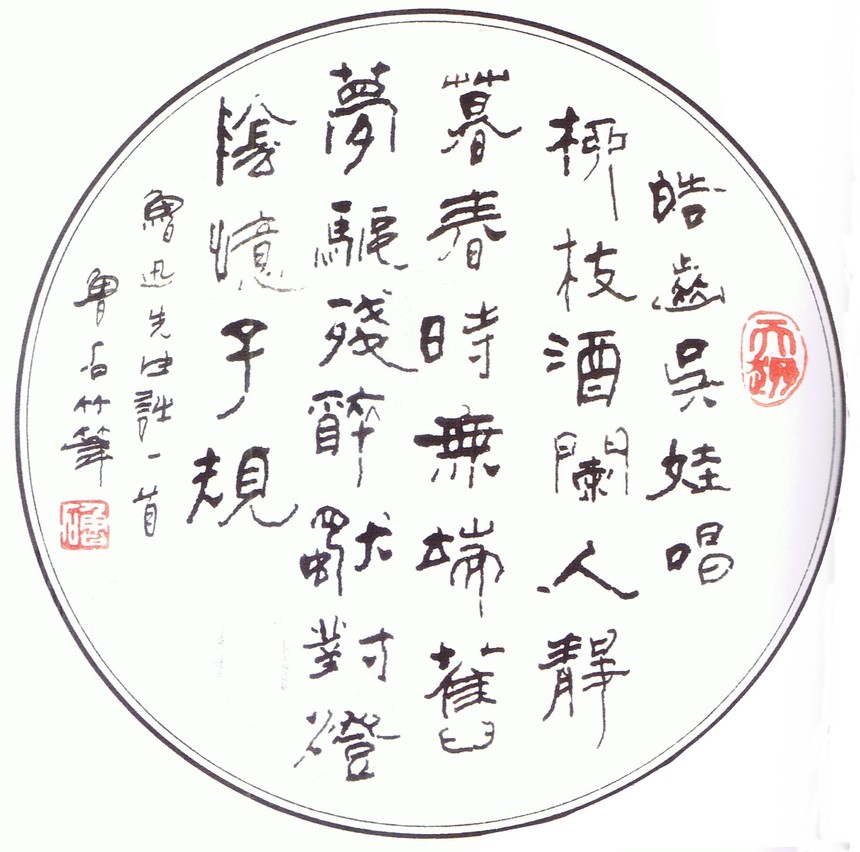 皓齒吳娃唱
柳枝酒闌人靜
暮春時無端舊
夢驅殘醉獨對燈
陰憶子規
魯迅先生詩一首
魯竹筆